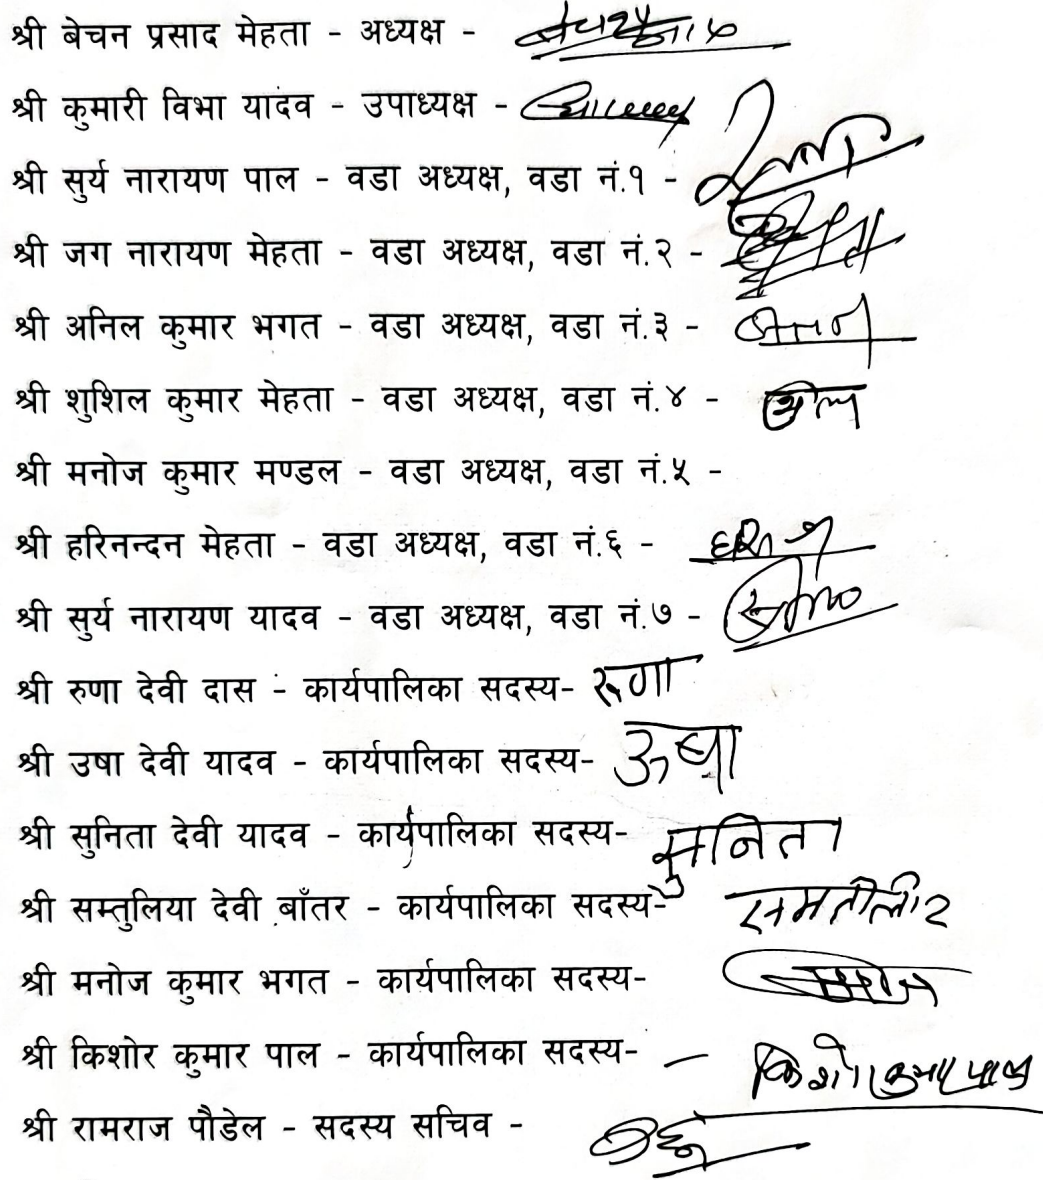 श्री बेचन प्रसाद मेहता - अध्यक्ष -
श्री कुमारी विभा यादव - उपाध्यक्ष -
श्री सुर्य नारायण पाल - वडा अध्यक्ष, वडा नं.१ -
श्री जग नारायण मेहता - वडा अध्यक्ष, वडा नं.२ -
श्री अनिल कुमार भगत - वडा अध्यक्ष, वडा नं.३ -
श्री शुशिल कुमार मेहता - वडा अध्यक्ष, वडा नं.४ -
श्री मनोज कुमार मण्डल - वडा अध्यक्ष, वडा नं.५ -
श्री हरिनन्दन मेहता - वडा अध्यक्ष, वडा नं.६ -
श्री सुर्य नारायण यादव - वडा अध्यक्ष, वडा नं.७ -
श्री रुणा देवी दास - कार्यपालिका सदस्य-
श्री उषा देवी यादव - कार्यपालिका सदस्य- ऊषा
श्री सुनिता देवी यादव - कार्यपालिका सदस्य- सुनिता
श्री सम्तुलिया देवी बाँतर - कार्यपालिका सदस्य-
श्री मनोज कुमार भगत - कार्यपालिका सदस्य-
श्री किशोर कुमार पाल - कार्यपालिका सदस्य- किशोर कुमार पाल
श्री रामराज पौडेल - सदस्य सचिव -